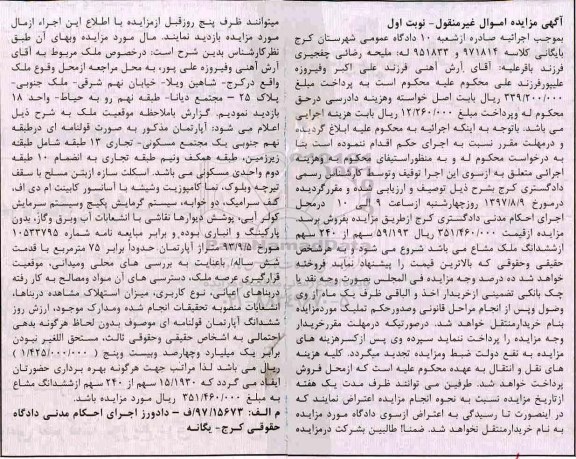 آگهی مزایده اموال غیرمنقول- نوبت اول
بموجب اجرائیه صادره ازشعبه ۱۰ دادگاه عمومی شهرستان کرج
بایگانی کلاسه ۹۷۱۸۱۴ و ۹۵۱۸۳۳ له: ملیحه رضائی چغجیری
فرزند باقرعلیه: آقای آرش آهنی فرزند علی اکبر وفیروزه
علیپورفرزند علی محکوم علیه محکوم است به پرداخت مبلغ
۳۳۹/۲۰۰/۰۰۰ ریال بابت اصل خواسته وهزینه دادرسی درحق
محکوم له وپرداخت مبلغ ۱۲/۲۶۰/۰۰۰ ریال بابت هزینه اجرایی
می باشد. باتوجه به اینکه اجرائیه به محکوم علیه ابلاغ گردیده
و درمهلت مقرر نسبت به اجرای حکم اقدام ننموده است بنا
به درخواست محکوم له و به منظوراستیفای محکوم به وهزینه
اجرائی متعلق به ازسوی این اجرا توقیف وتوسط کارشناس رسمی
دادگستری کرج بشرح ذیل توصیف و ارزیابی شده و مقررگردیده
مورخ ۱۳۹۷/۸/۹ روزچهارشنبه ازساعت ۹ الی ۱۰ درمحل
اجرای احکام مدنی دادگستری کرج ازطریق مزایده بفروش برسد.
مزایده ازقیمت ۳۵۱/۴۶۰/۰۰۰ ریال ۵۹/۱۹۳ سهم از ۲۴۰ سهم
ازششدانگ ملک مشاع می باشد شروع می شود و به شخص
حقیقی وحقوقی که بالاترین قیمت را پیشنهاد نماید فروخته
خواهد شد ده درصد وجه مزایده فی المجلس بصورت وجه نقد یا
چک بانکی تضمینی ازخریدار اخذ و الباقی ظرف یک ماه از وی
وصول وپس از انجام مراحل قانونی وصدورحکم تملیک موردمزایده
بنام خریدارمنتقل خواهد شد. درصورتیکه درمهلت مقررخریدار
وجه مزایده را پرداخت ننماید سپرده وی پس ازکسرهزینه های
مزایده به نفع دولت ضبط ومزایده تجدید میگردد. کلیه هزینه
های نقل و انتقال به عهده محکوم علیه است که ازمحل فروش
پرداخت خواهد شد. طرفین می توانند ظرف مدت یک هفته
ازتاریخ مزایده نسبت به نحوه انجام مزایده اعتراض نمایند که
در اینصورت تا رسیدگی به اعتراض ازسوی دادگاه مورد مزایده
به نام خریدارمنتقل نخواهد شد. ضمنا طالبین بشرکت درمزایده
میتوانند ظرف پنج روزقبل ازمزایده با اطلاع این اجراء ازمال
مورد مزایده بازدید نمایند. مال مورد مزایده وبهای آن طبق
نظرکارشناس بدین شرح است: درخصوص ملک مربوط به آقای
آرش آهنی وفیروزه علی پور، به محل مراجعه ازمحل وقوع ملک
واقع درکرج- شاهین ویلا- خیابان نهم شرقی- ملک جنوبی-
پلاک ۲۵ - مجتمع دیانا- طبقه نهم رو به حیاط- واحد ۱۸
بازدید نمودیم. گزارش باملاحظه موقعیت ملک به شرح ذیل
اعلام می شود: آپارتمان مذکور به صورت قولنامه ای درطبقه
نهم جنوبی یک مجتمع مسکونی- تجاری ۱۳ طبقه شامل طبقه
زیرزمین، طبقه همکف ونیم طبقه تجاری به انضمام ۱۰ طبقه
دوم واحدی مسکونی می باشد. اسکلت سازه ازبتن مسلح با سقف
تیرچه وبلوک، نما کامپوزیت وشیشه با آسانسور کابینت ام دی اف،
کف سرامیک، دو خوابه، سیستم گرمایش پکیج وسیستم سرمایش
کولر آبی، پوشش دیوارها نقاشی با انشعابات آب وبرق وگاز، بدون
پارکینگ و انباری بوده و برابر مبایعه نامه شماره ۱۰۵۳۳۷۹۵
مورخ ۹۳/۹/۵ متراژ آپارتمان حدوداً برابر ۷۵ مترمربع با قدمت
شش ساله/ باعنایت به بررسی های محلی ومیدانی، موقعیت
قرارگیری عرصه ملک، دسترسی های آن مواد ومصالح به کار رفته
دربناهای اعیانی، نوع کاربری، میزان استهلاک مشاهده دربناها،
انشعابات منصوبه تحقیقات انجام شده ومدارک موجود، ارزش روز
ششدانگ آپارتمان قولنامه ای موصوف بدون لحاظ هرگونه بدهی
احتمالی به اشخاص حقیقی وحقوقی ثالث، مستحق الغیر نبودن
برابر یک میلیارد وچهارصد وبیست وپنج ( ۱/۴۲۵/۰۰۰/۰۰۰ )
ریال می باشد لذا مراتب جهت هرگونه بهره برداری حضورتان
ایفاد می گردد که ۱۵/۱۹۳۰ سهم از ۲۴۰ سهم ازششدانگ مشاع
به مبلغ ۳۵۱/۴۶۰/۰۰۰ ریال مورد مزایده باشد.
م الف: ۹۷/۱۵۶۷۳/ف – دادورز اجرای احکام مدنی دادگاه
حقوقی کرج- یگانه